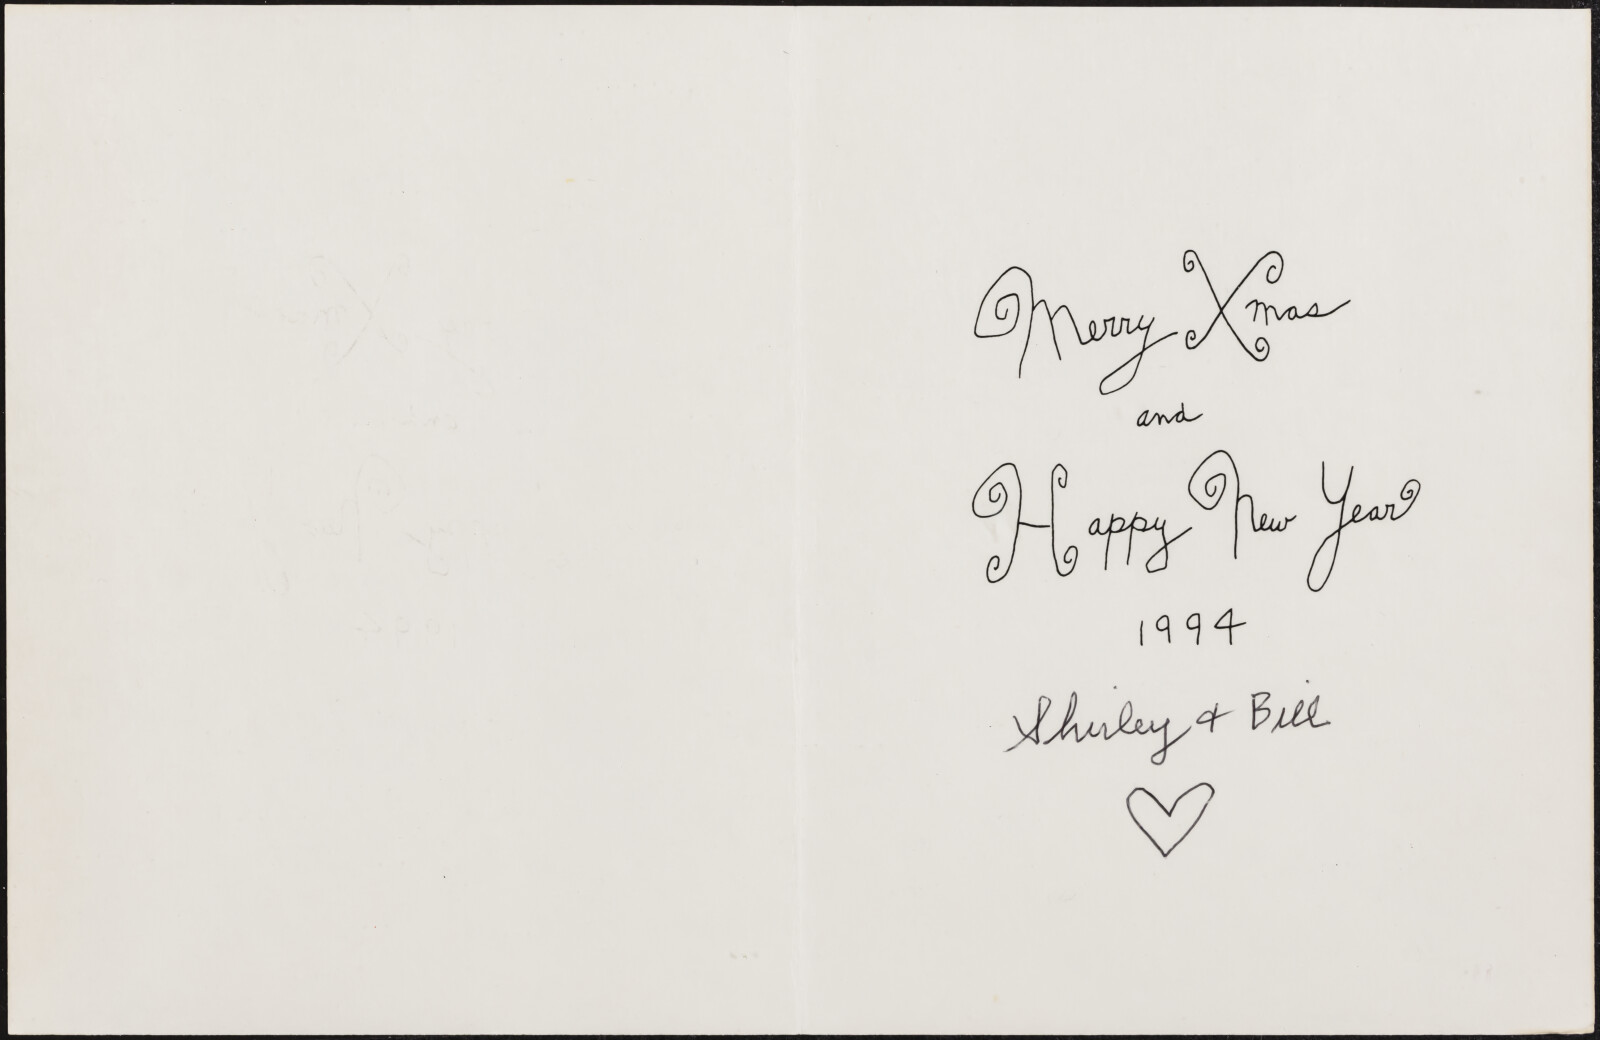 Merry Xmas
and
Happy New Year
1994
Shirley & Bill